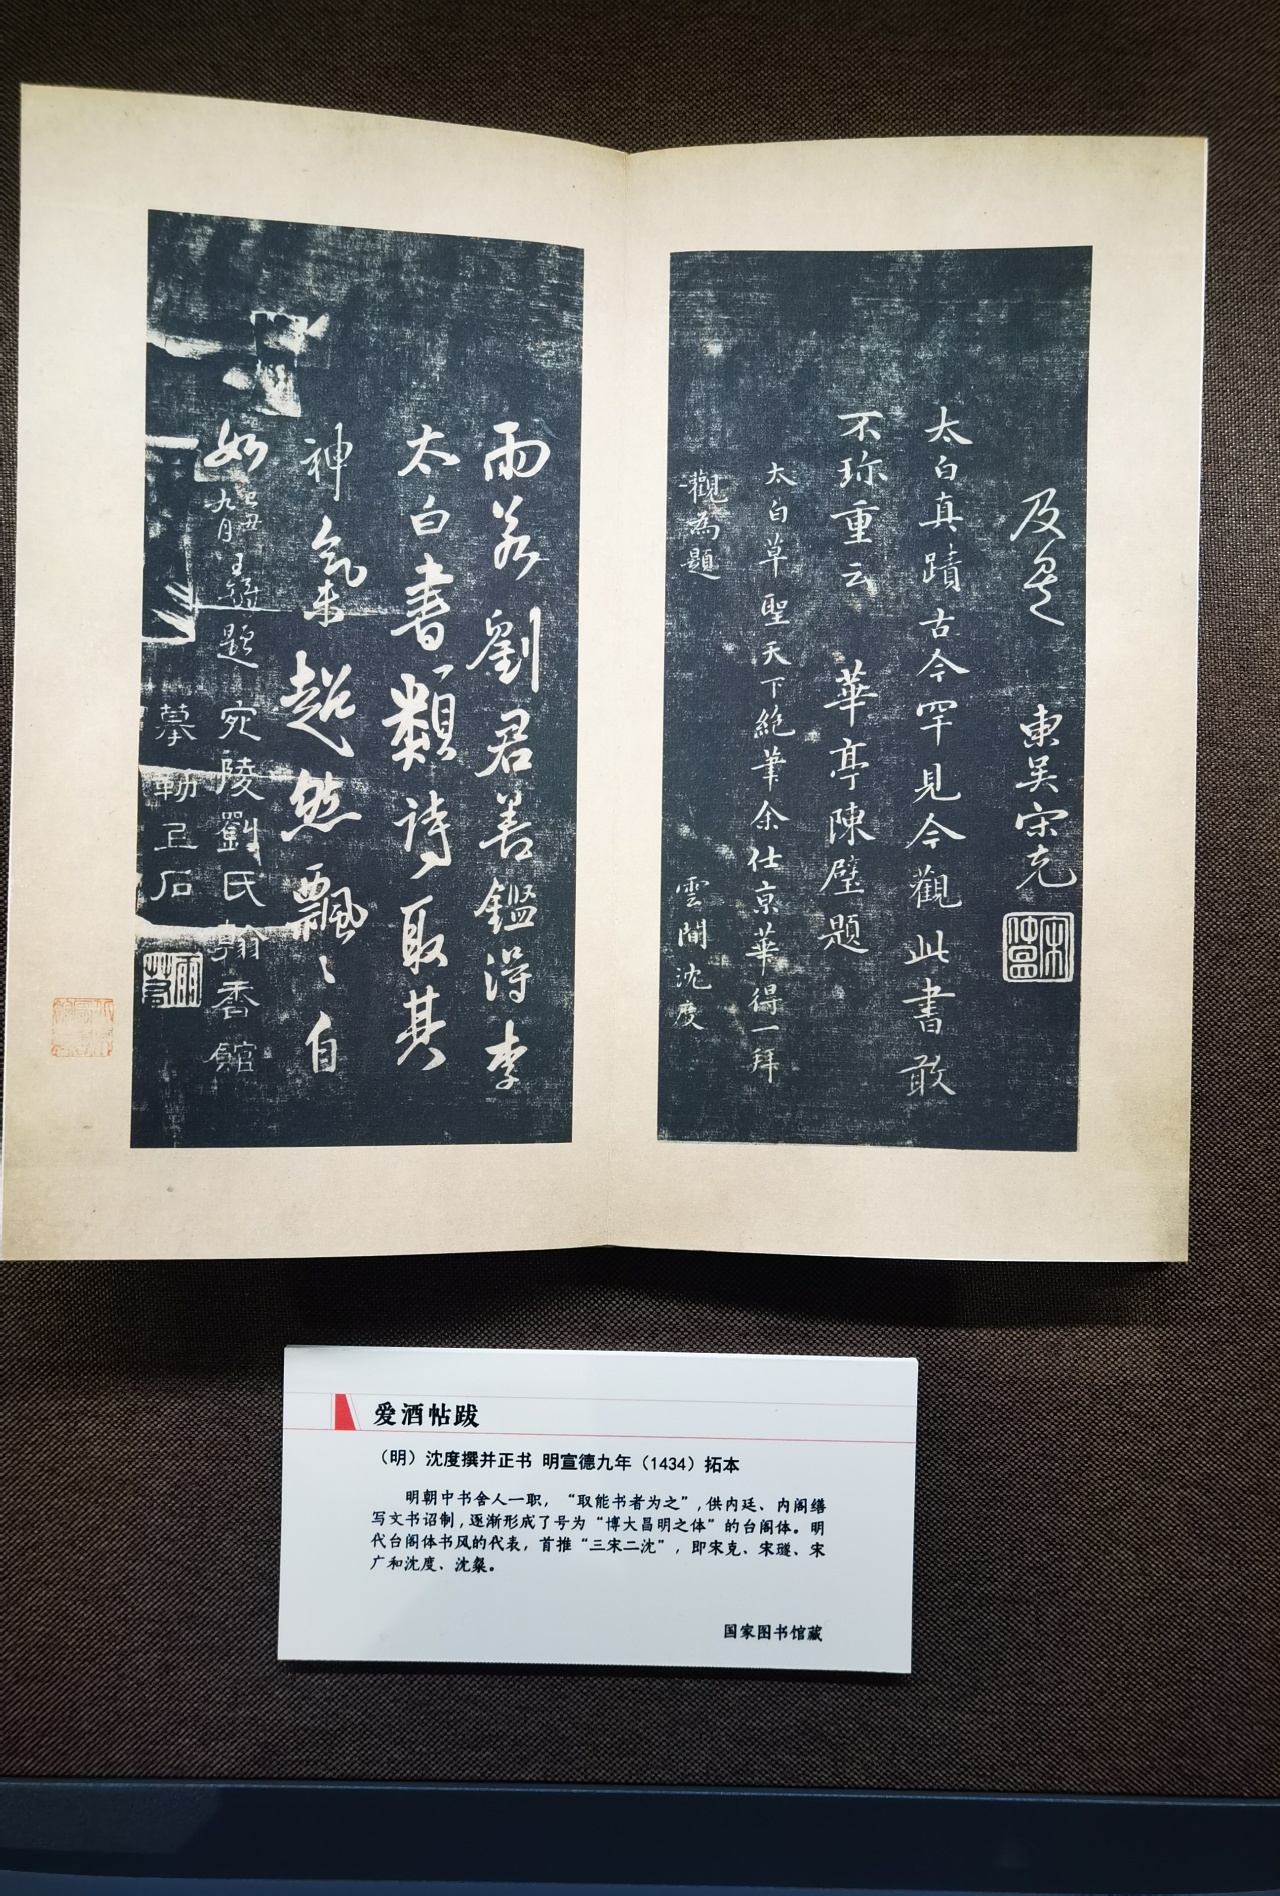 及见
東吴宋克
太白真蹟古今罕見今觀此書敢
不珎重云 華亭陳璧題
太白草聖天下絶筆余仕京華得一拜
觀為題 雲間沈度
雨若劉君善鑑得李
太白書一類詩取其
神氣超然飄〻自
如 己丑九月王鐸題 宛陵劉氏翰香館
摹勒上石
爱酒帖跋
（明）沈度撰并正书 明宣德九年（1434）拓本
明朝中书舍人一职，“取能书者为之”，供内廷、内阁缮
写文书诏制，逐渐形成了号为“博大昌明之体”的台阁体。明
代台阁体书风的代表，首推“三宋二沈”，即宋克、宋璲、宋
广和沈度、沈粲。
国家图书馆藏